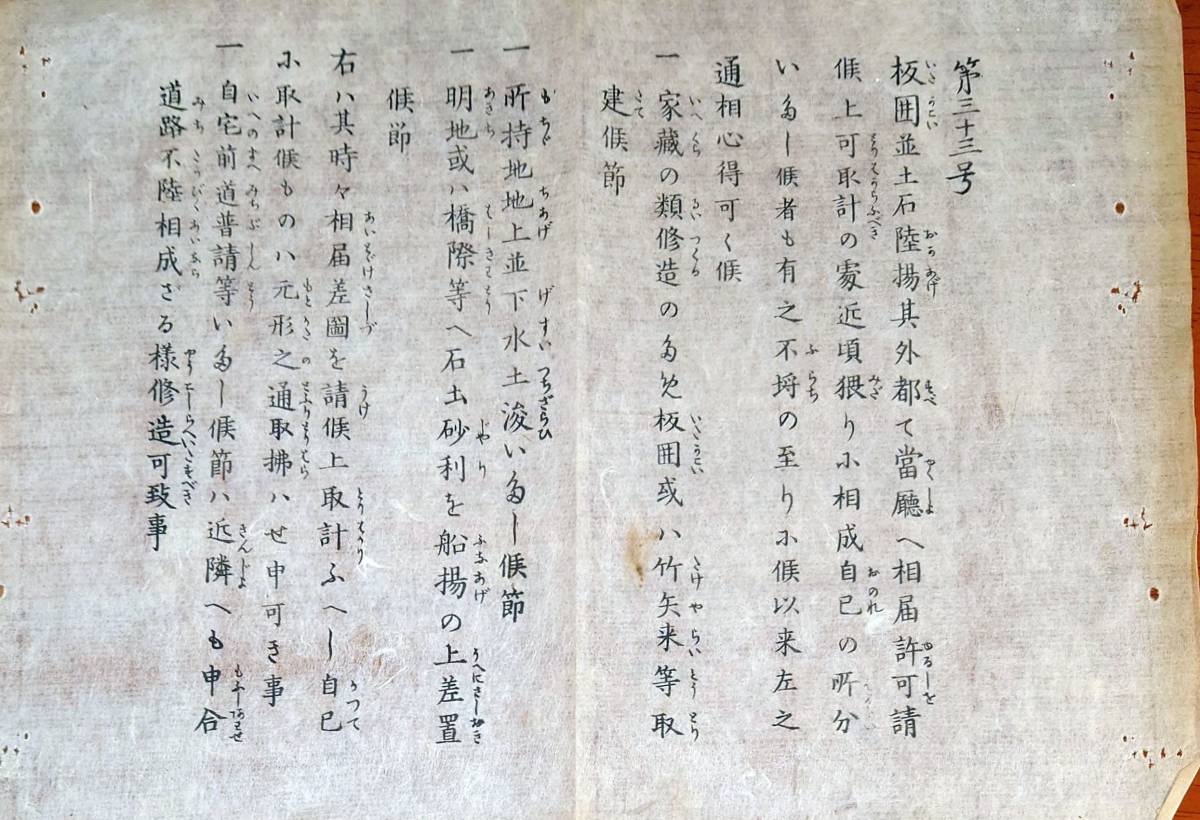 第三十三号
板囲並土石陸揚其外都て當廳へ相届許可請
候上可取計の處近頃猥り小相成自己の所分
いゟし候者も有之不埒の至り小候以来左之
通相心得可く候
一 家藏の類修造のゟめ板囲或ハ竹矢来等取
建候節
一 所持地地上並下水土浚いゟし候節
一 明地或ハ橋際等へ石土砂利を船揚の上差置
候節
右ハ其時々相届差圖を請候上取計ふへし自己
小取計候ものハ元形之通取拂ハせ申可き事
一 自宅前道普請等いゟし候節ハ近隣へも申合
道路不陸相成ざる様修造可致事